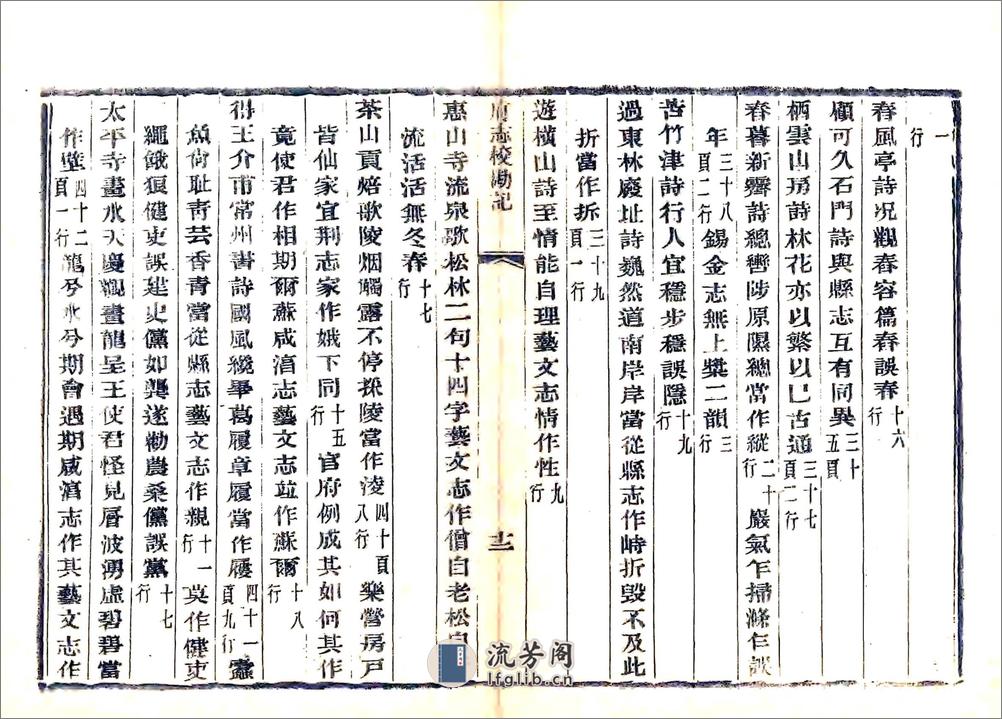 一
行
春風亭詩况觀春容篇春誤春十六行
顧可久石門詩與縣志互有同異三十五頁
栖雲山房詩林花亦以繁以巳古通三十七頁二行
春暮新霽詩總轡陟原隰總當作縱二十行 嚴氣乍掃滌乍誤
年三十八頁二行 錫金志無上奬二韻三行
苦竹津詩行人宜穩步穩誤隱十九行
過東林廢址詩巍然道南岸岸當從縣志作峙折毀不及此
折當作拆三十九頁一行
遊橫山詩至情能自理藝文志情作性九行
府志校勘記
十二
惠山寺流泉歌松林二句十四字藝文志作僧白老松
流活活無冬春十七行
茶山貢焙歌陵烟觸露不停採陵當作淩四十頁八行 樂營房戸
皆仙家宜荆志家作娥下同十五行 官府例成其如何其作
竟使君作相期爾蘇咸淳志藝文志竝作蘇爾十八行
得王介甫常州書詩國風纔畢葛履章履當作屨四十一頁九行 蠶
魚尙耻靑芸香靑當從縣志藝文志作親十一行 莫作健吏
繩餓狼健吏誤建史黨如龔遂勸農桑儻誤黨十七行
太平寺畫水天慶觀畫龍呈王使君怪見脣波湧虛碧碧當
作壁四十二頁一行 龍兮水兮期會遇期咸淳志作其藝文志作
流芳阁
lfglib.cn